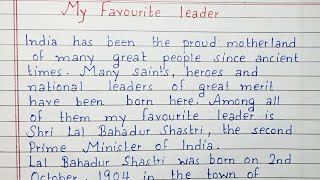 My Favourite leader
India has been the proud motherland
of many great people since ancient
times. Many saints, heroes and
national leaders of great merit
have been born here. Among all
of them my favourite leader is
Shri Lal Bahadur Shastri, the second
Prime Minister of India.
Lal Bahadur Shastri was born on 2nd
October, 1904 in the town of